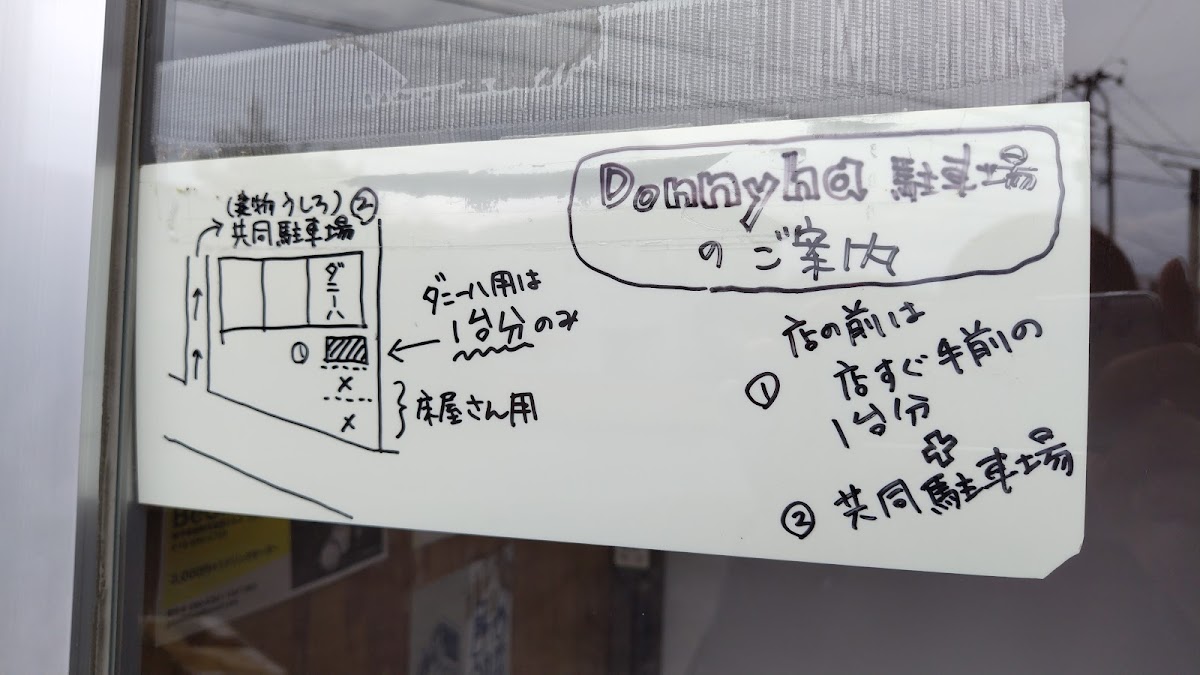 Donnyha 駐車場
のご案内
店の前は
① 店すぐ手前の
1台分
✚
② 共同駐車場
(建物うしろ) ②
共同駐車場
ダニーハ
①
×
×
ダニーハ用は
1台分のみ
床屋さん用